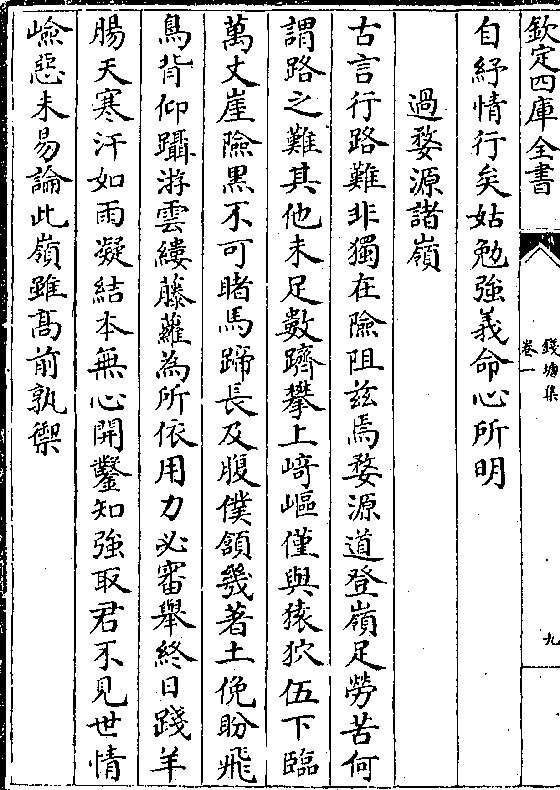 欽定四庫全書
錢塘集
卷一
九
自紓情行矣姑勉強義命心所明
過婺源諸嶺
古言行路難非獨在險阻兹焉婺源道登嶺足勞苦何
謂路之難其他未足數躋攀上﨑嶇僅與猿狖伍下臨
萬丈崖險黒不可睹馬蹄長及腹僕頷幾著土俛盼飛
鳥背仰躡游雲縷藤蘿為所依用力必審舉終日踐羊
腸天寒汗如雨凝結本無心開鑿知強取君不見世情
嶮惡未易論此嶺雖髙前孰禦